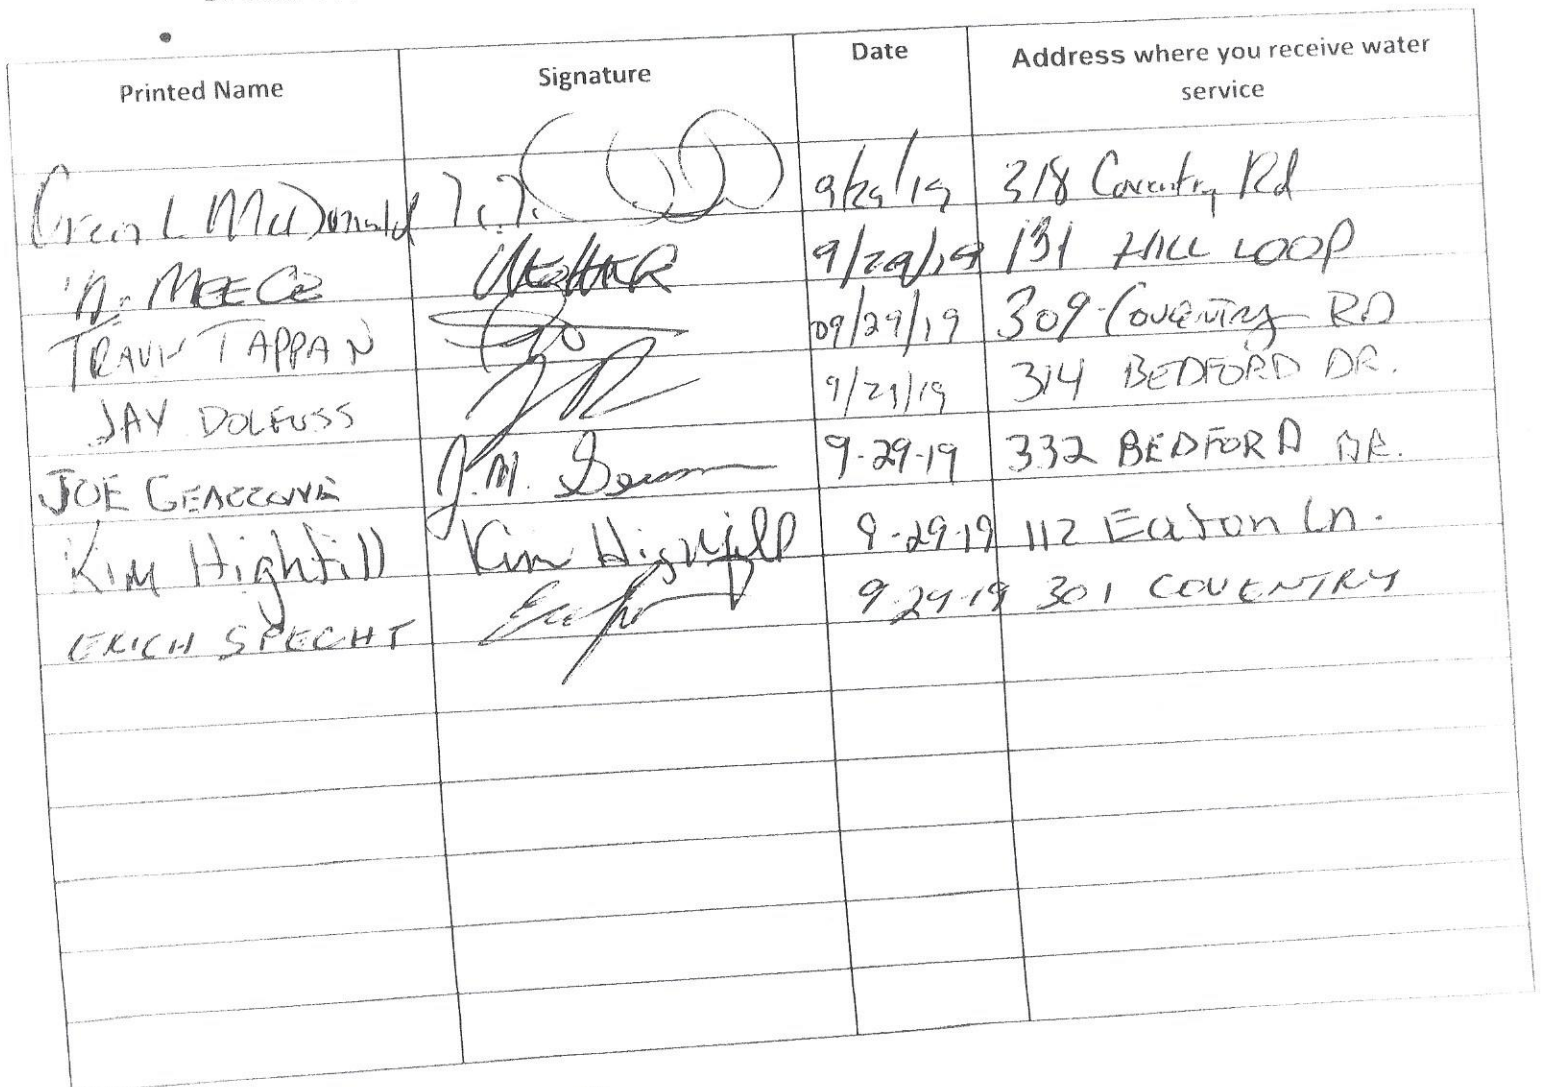 Printed Name Signature Date Address where you receive water service
L McDonald 9/29/19 318 Coventry Rd
MEECE 9/29/19 131 HILL LOOP
TRAVIS TAPPAN 09/29/19 309 Coventry RD
JAY DOLFUSS 9/29/19 314 BEDFORD DR.
JOE J.M. 9-29-19 332 BEDFORD DR.
Kim Highfill Kim Highfill 9-29-19 112 Eaton Ln.
ERICH SPECHT 9-29-19 301 COVENTRY